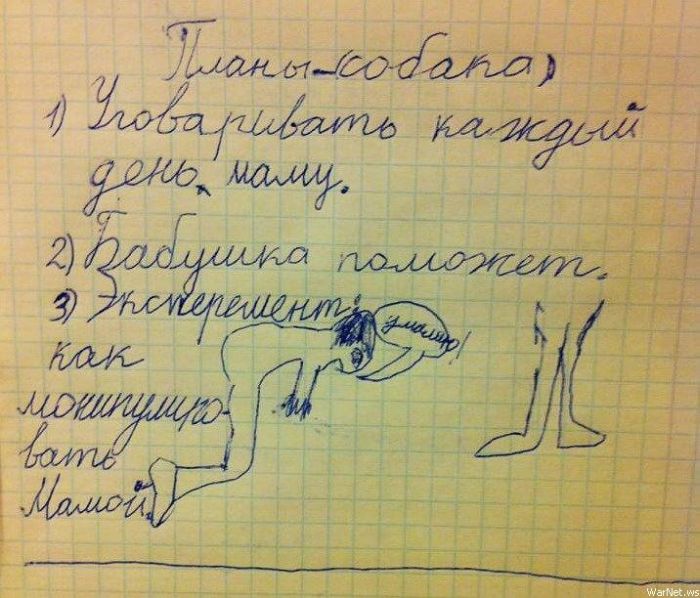 Планы-(собака)
1) Уговаривать каждый
день маму.
2) Бабушка поможет.
3) Эксперемент:
умаляю!
как
монипулиро-
вать
Мамой.
WarNet.ws